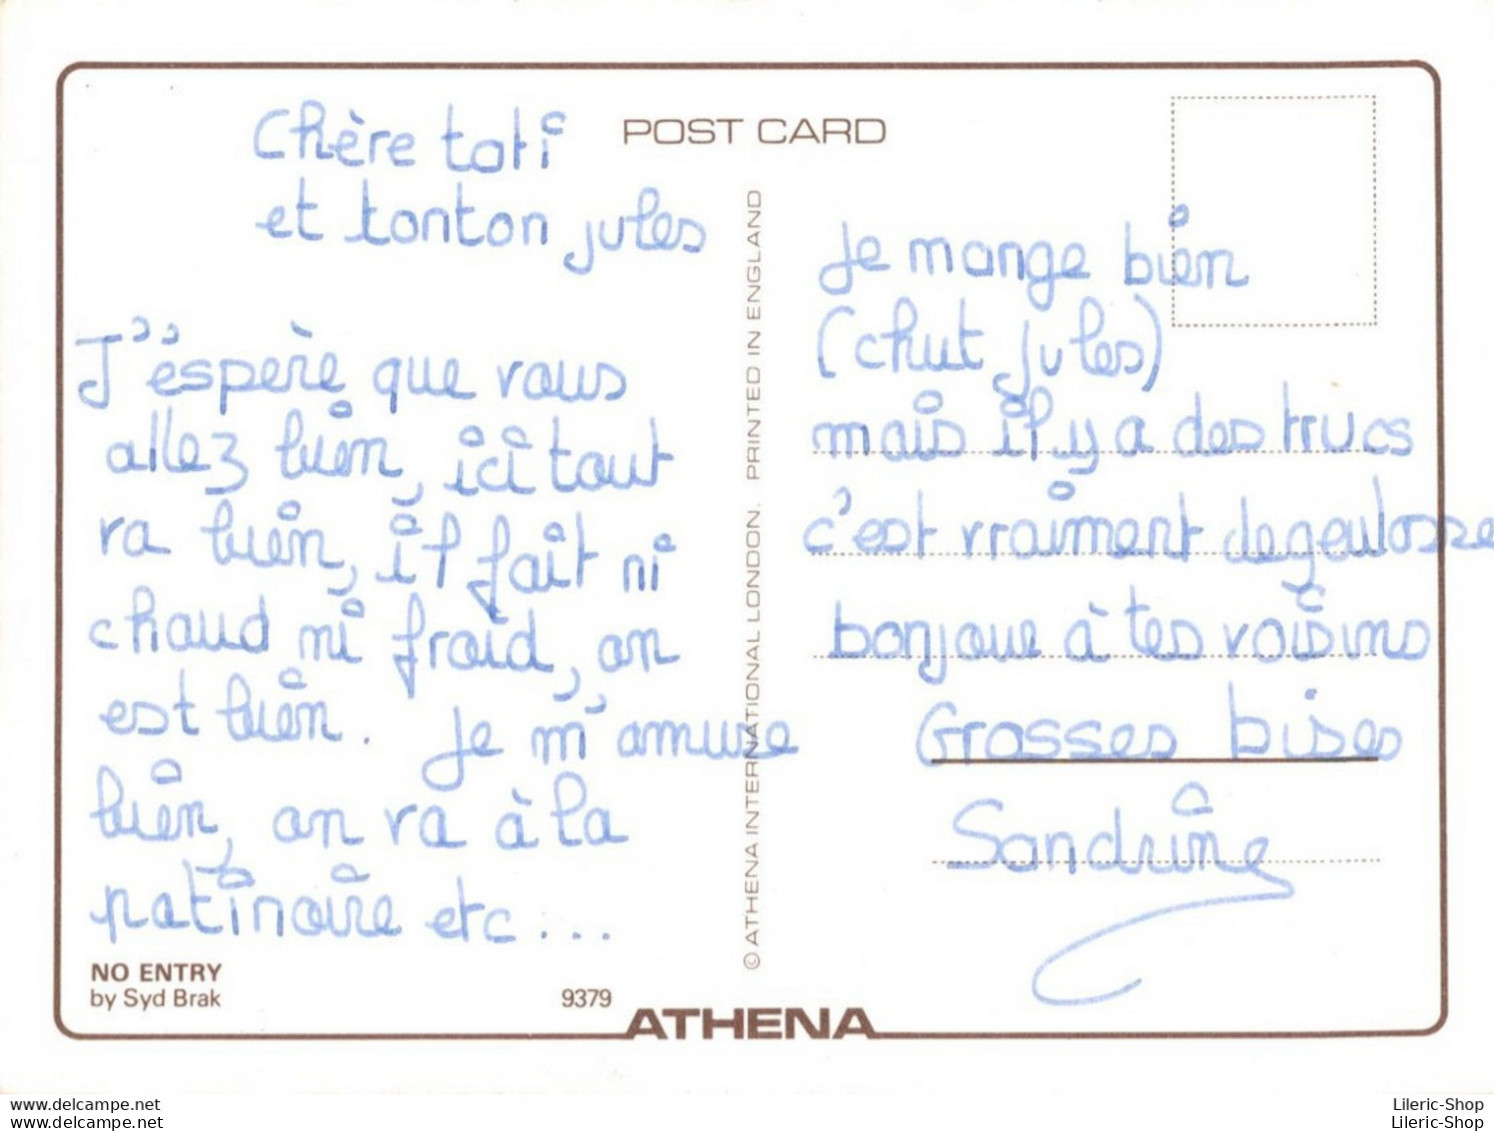 POST CARD
Chère tati
et tonton jules
J'éspère que vous
allez bien, ici tout
va bien, il fait ni
chaud ni froid, on
est bien. Je m'amuse
bien, on va à la
patinoire etc...
Je mange bien
(chut Jules)
mais il y a des trucs
c'est vraiment degeulasse
bonjour à tes voisins
Grosses bises
Sandrine
© ATHENA INTERNATIONAL LONDON. PRINTED IN ENGLAND
NO ENTRY
by Syd Brak
9379
ATHENA
www.delcampe.net
www.delcampe.net
Lileric-Shop
Lileric-Shop